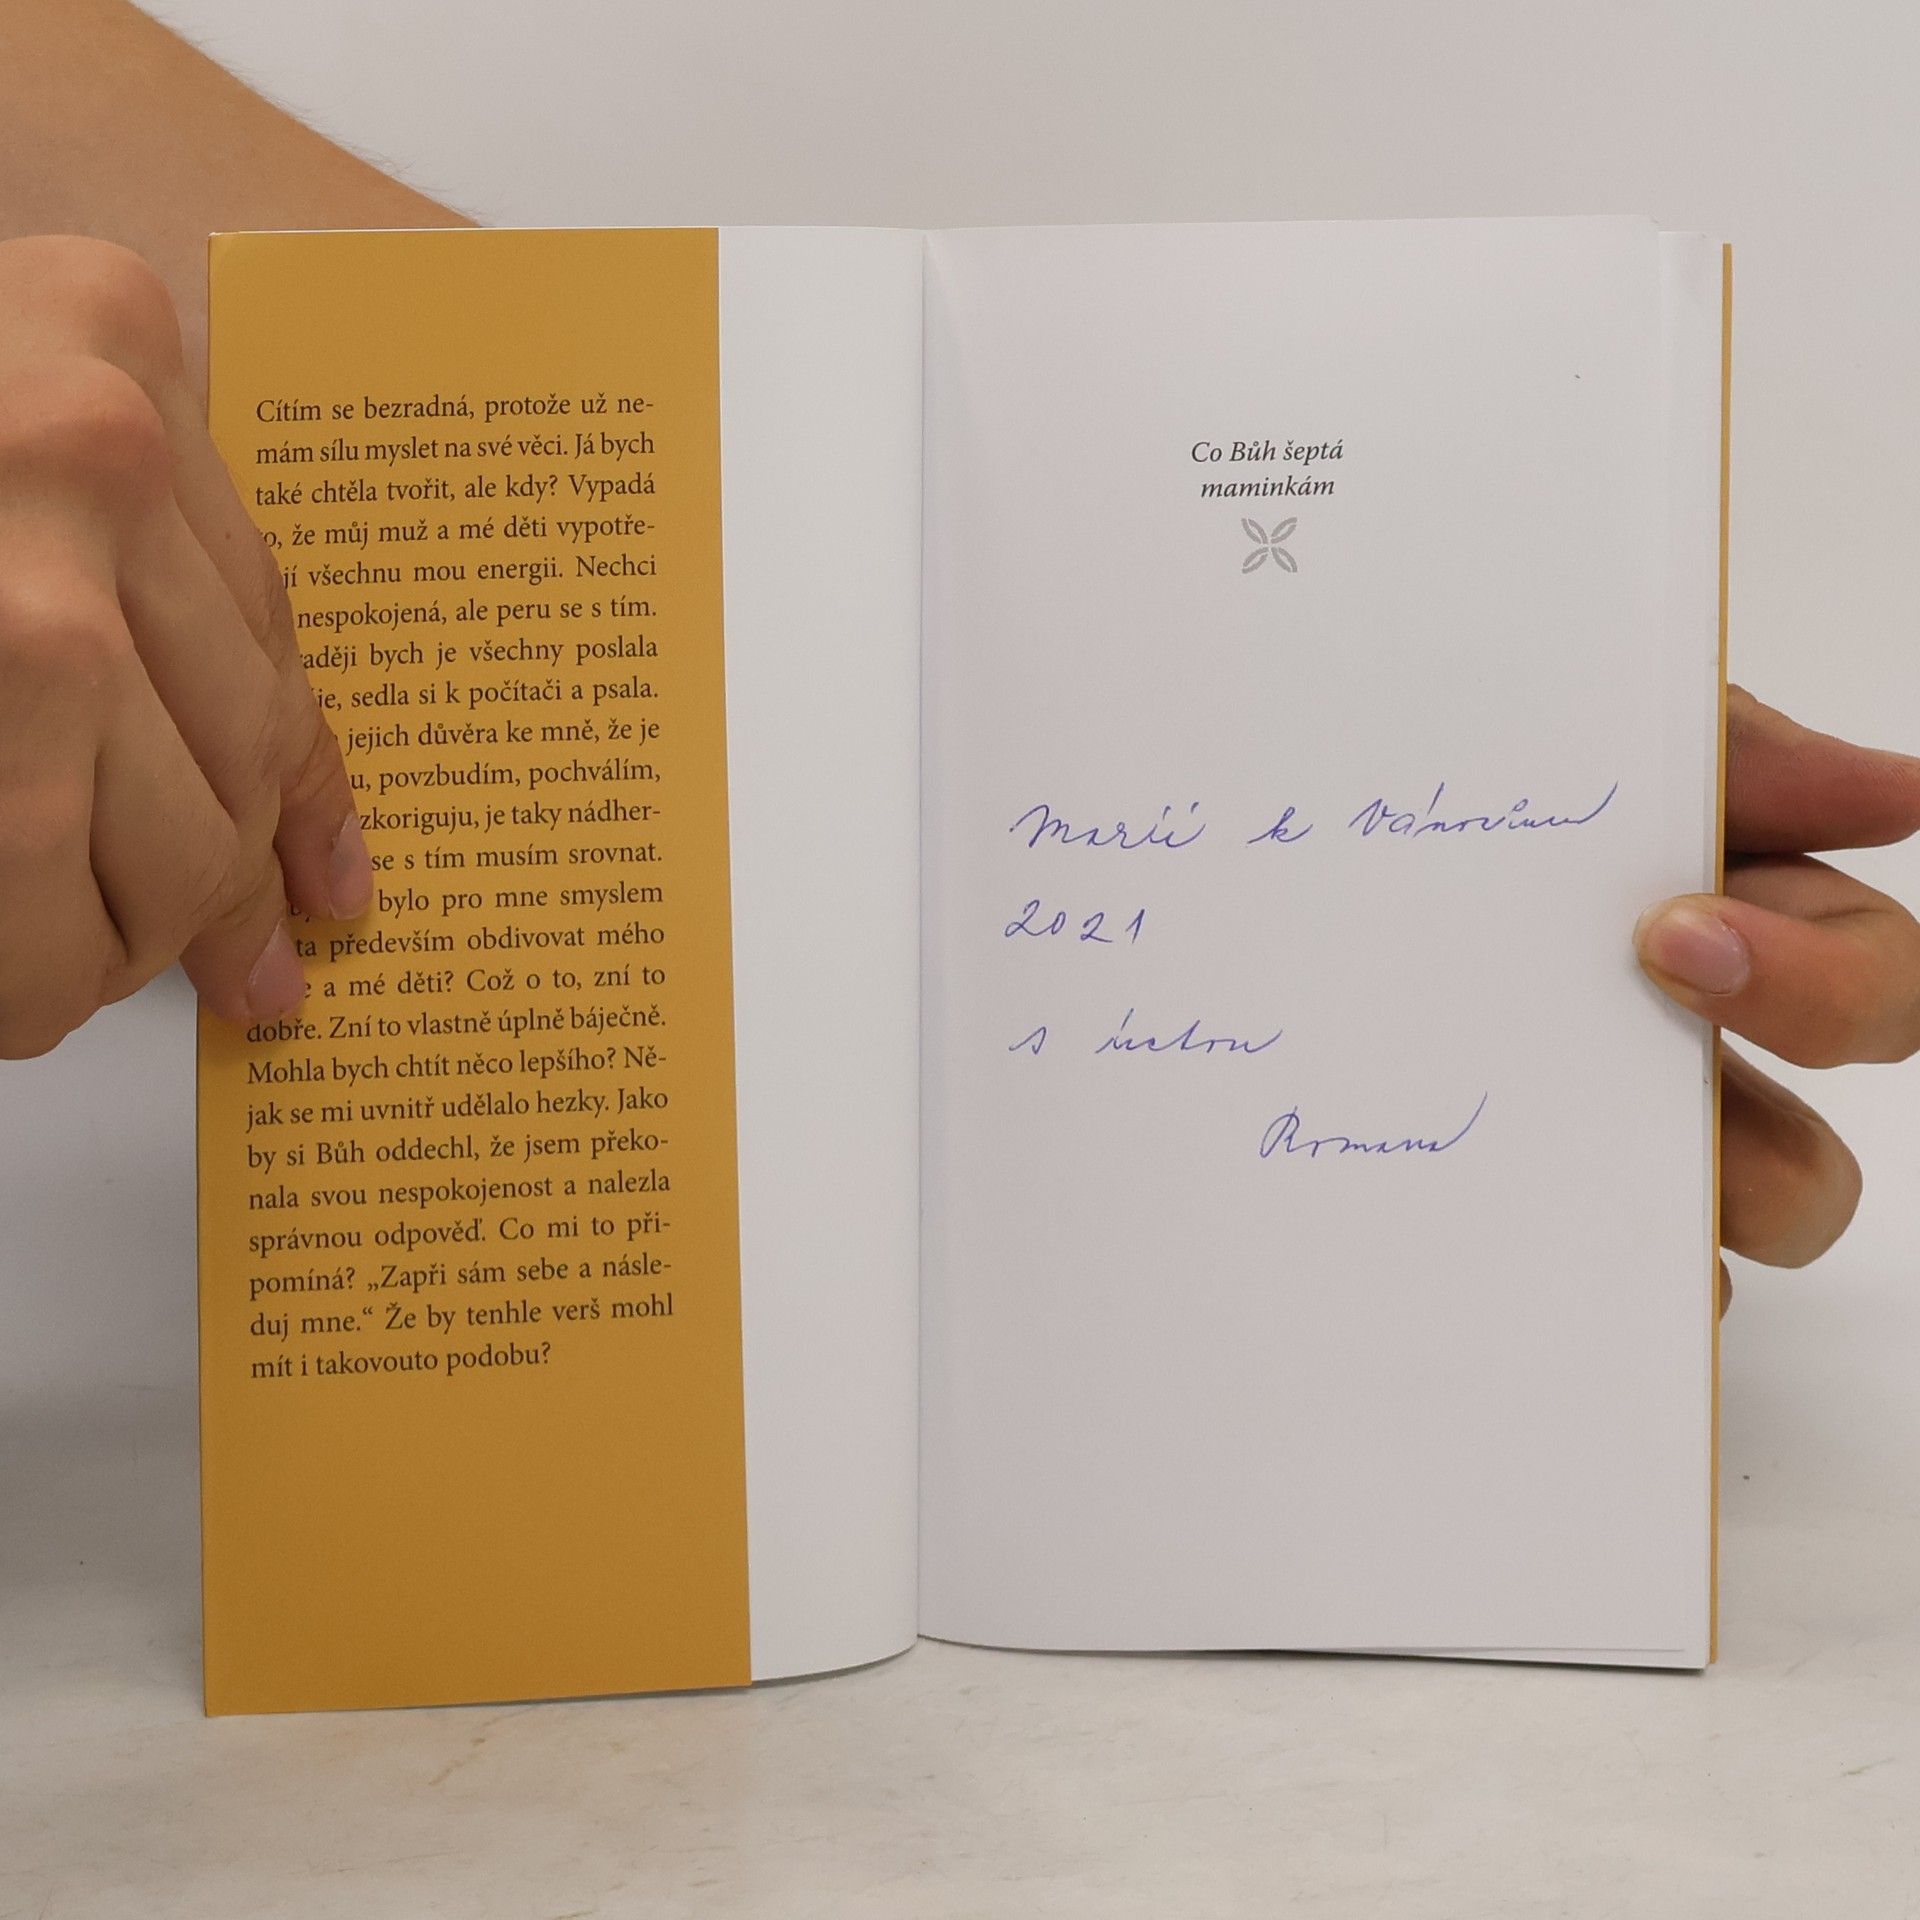 Cítím se bezradná, protože už ne-
mám sílu myslet na své věci. Já bych
také chtěla tvořit, ale kdy? Vypadá
to, že můj muž a mé děti vypotře-
jí všechnu mou energii. Nechci
nespokojená, ale peru se s tím.
raději bych je všechny poslala
sedla si k počítači a psala.
jejich důvěra ke mně, že je
povzbudím, pochválím,
zkoriguju, je taky nádher-
se s tím musím srovnat.
bylo pro mne smyslem
především obdivovat mého
a mé děti? Což o to, zní to
dobře. Zní to vlastně úplně báječně.
Mohla bych chtít něco lepšího? Ně-
jak se mi uvnitř udělalo hezky. Jako
by si Bůh oddechl, že jsem překo-
nala svou nespokojenost a nalezla
správnou odpověď. Co mi to při-
pomíná? „Zapři sám sebe a násle-
duj mne.“ Že by tenhle verš mohl
mít i takovouto podobu?
Co Bůh šeptá
maminkám
Marii k Vánocům
2021
s úctou
Romana